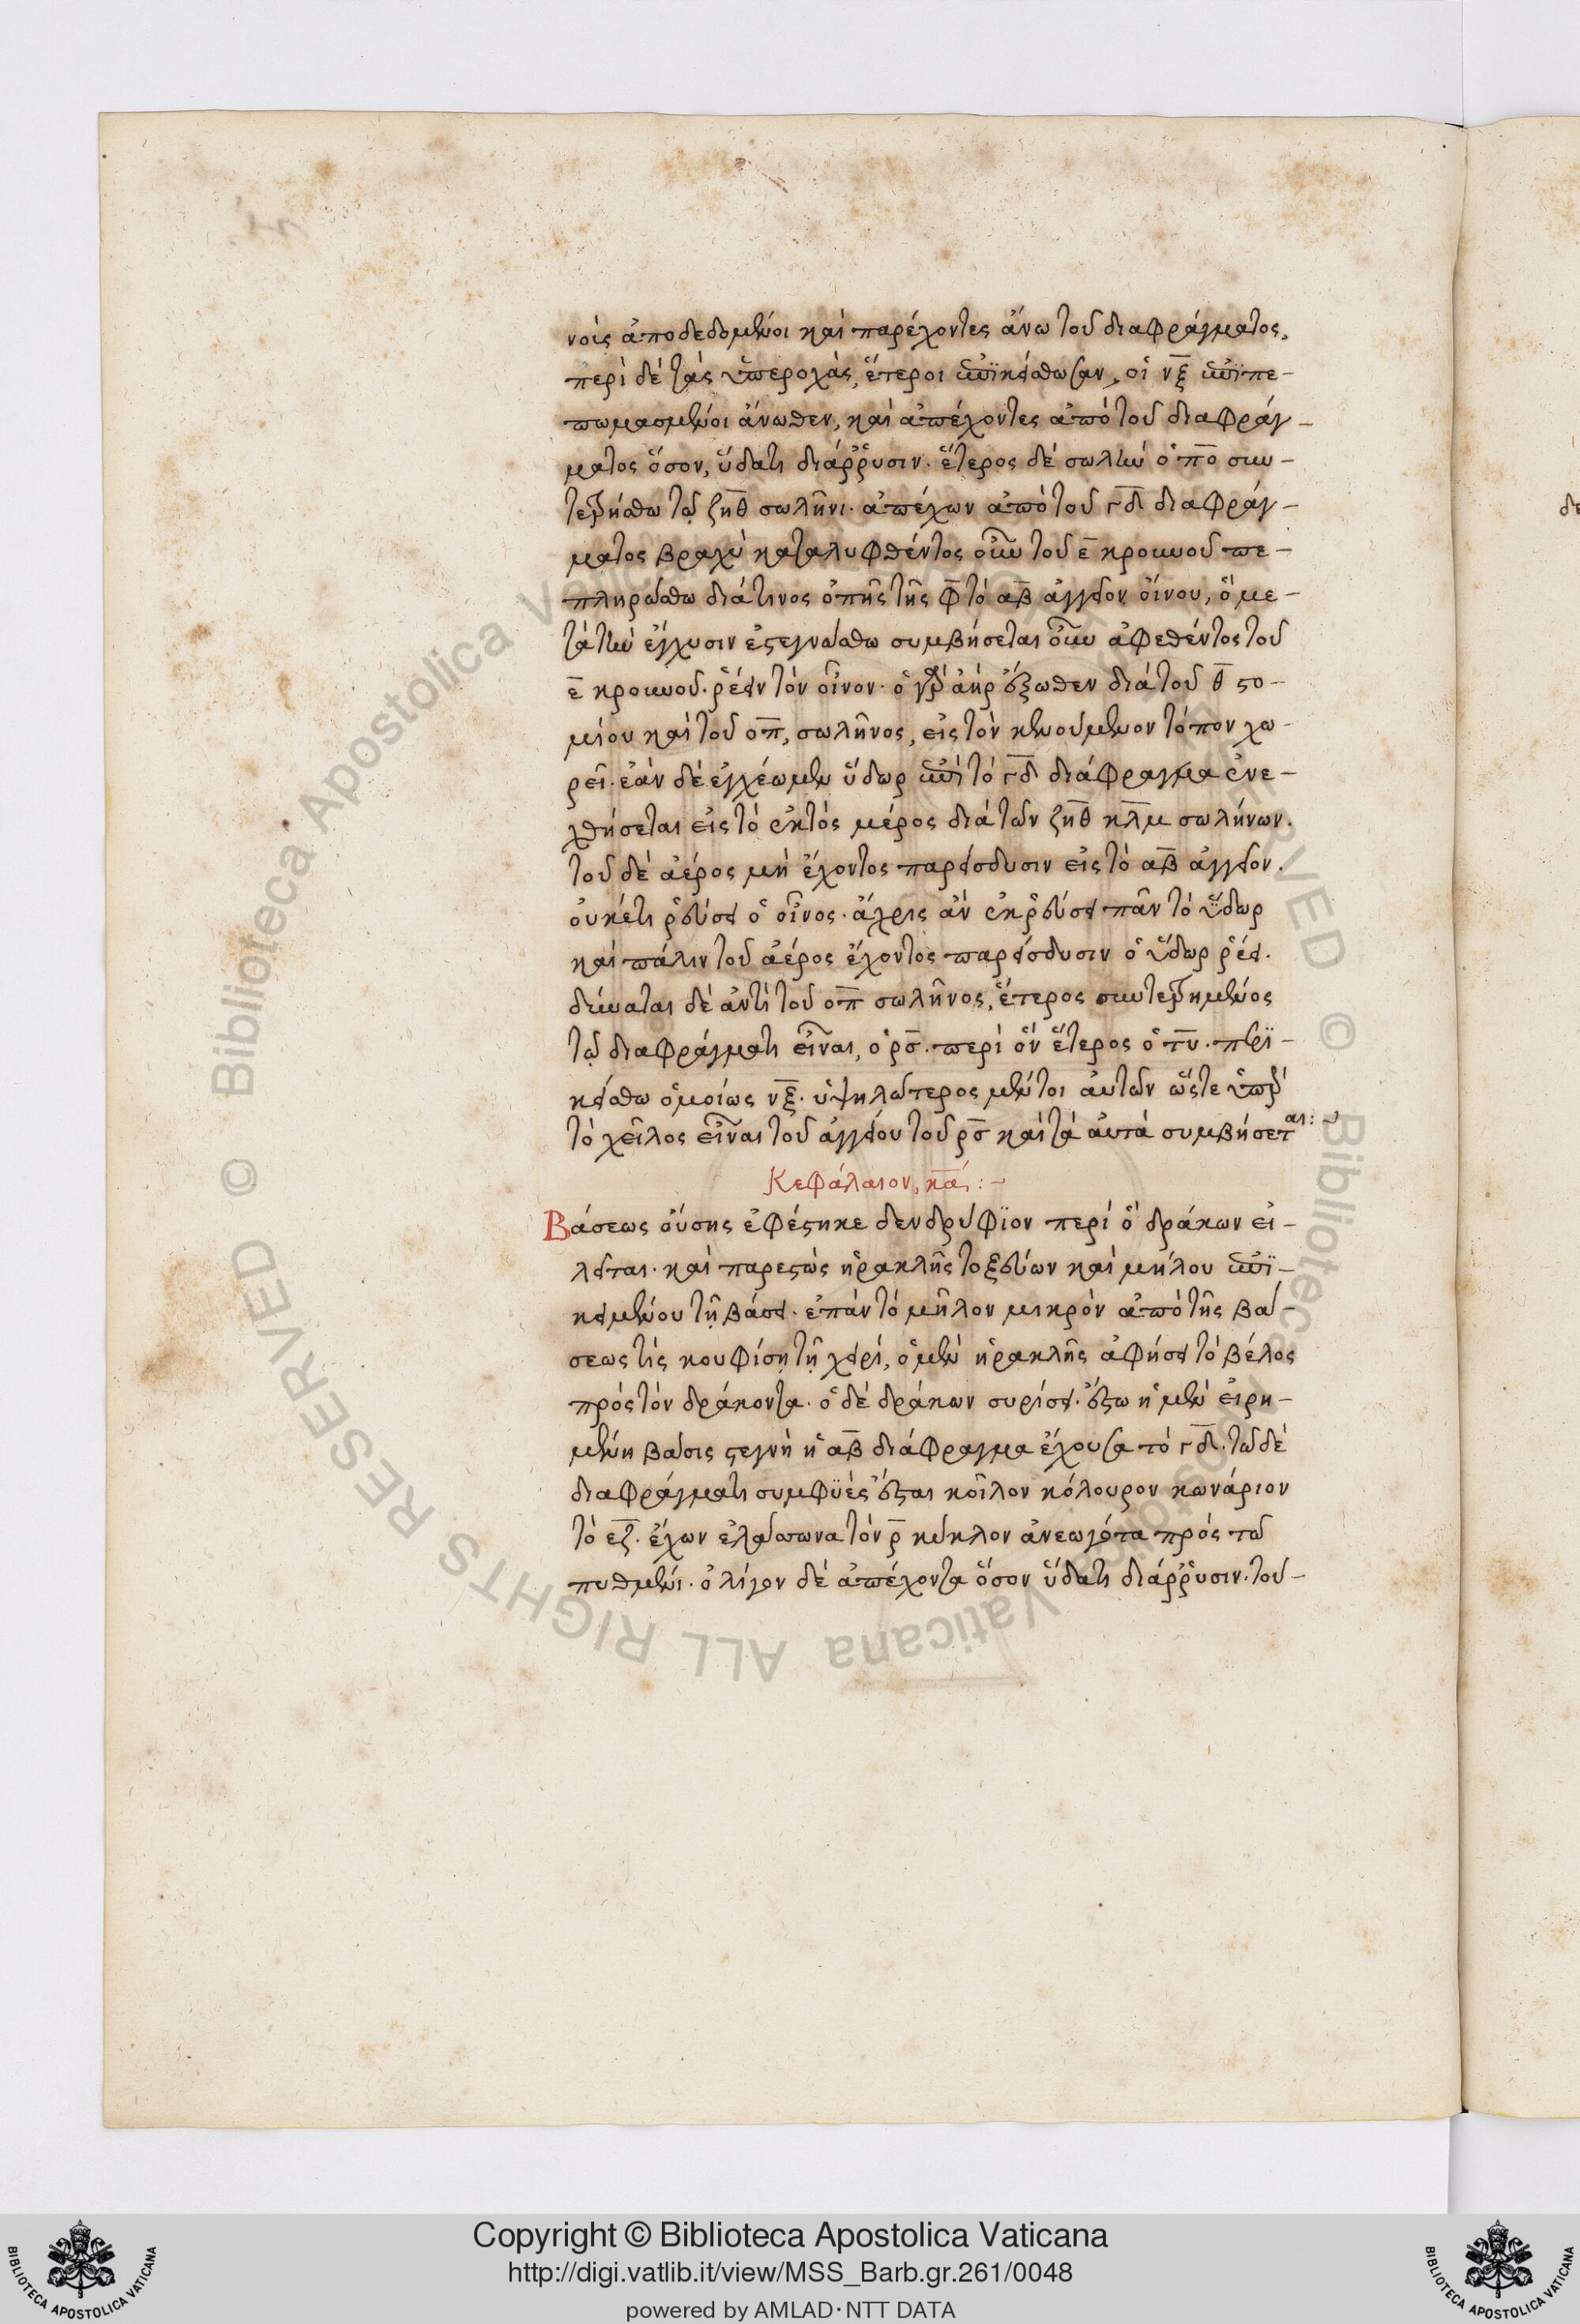 νοις ἀποδεδομένοι καὶ παρέχοντες ἄνω τοῦ διαφράγματος,
περὶ δὲ τὰς ὑπεροχὰς, ἕτεροι ἐπϊκείσθωσαν, οἱ νξ ἐπϊπε-
πωμασμένοι ἄνωθεν, καὶ ἀπέχοντες ἀπὸ τοῦ διαφράγ-
ματος ὅσον, ὕδατι διάρρυσιν. ἕτερος δὲ σωλὴν ὁ πο συν-
τετρήσθω τῷ ζηθ σωλῆνι. ἀπέχων ἀπὸ τοῦ γδ διαφράγ-
ματος βραχὺ καταλυφθέντος οὖν τοῦ ε κρουνοῦ πε-
πληρώσθω διά τινος ὀπῆς τῆς φ τὸ αβ ἀγγεῖον οἴνου, ὃ με-
τὰ τὴν ἔγχυσιν ἐστεγνώσθω συμβήσεται οὖν ἀφεθέντος τοῦ
ε κρουνοῦ. ῥέειν τὸν οἶνον. ὁ γὰρ ἀὴρ ἔξωθεν διὰ τοῦ θ στο-
μίου καὶ τοῦ οπ, σωλῆνος, εἰς τὸν κενούμενον τόπον χω-
ρεῖ. ἐὰν δὲ ἐγχέωμεν ὕδωρ ἐπὶ τὸ γδ διάφραγμα ἐνε-
χθήσεται εἰς τὸ ἐκτὸς μέρος διὰ τῶν ζηθ κλμ σωλήνων.
τοῦ δὲ ἀέρος μὴ ἔχοντος παρείσδυσιν εἰς τὸ αβ ἀγγεῖον.
οὐκέτι ῥεύσει ὁ οἶνος. ἄχρις ἂν ἐκρεύσει πᾶν τὸ ὕδωρ
καὶ πάλιν τοῦ ἀέρος ἔχοντος παρείσδυσιν ὁ ὕδωρ ῥέει.
δύναται δὲ ἀντὶ τοῦ οπ σωλῆνος, ἕτερος συντετρημένος
τῷ διαφράγματι εἶναι, ὁ ρσ. περὶ ὃν ἕτερος ὁ τυ. περϊ-
κείσθω ὁμοίως νξ. ὑψηλώτερος μέντοι αὐτῶν ὥστε ὑπὲρ
τὸ χεῖλος εἶναι τοῦ ἀγγείου τοῦ ρσ καὶ τὰ αὐτὰ συμβήσεται:~
Κεφάλαιον, κα:~
Βάσεως οὔσης ἐφέστηκε δενδρύφϊον περὶ ὃ δράκων εἰ-
λεῖται. καὶ παρεστὼς ἡρακλῆς τοξεύων καὶ μήλου ἐπϊ-
κειμένου τῇ βάσει. ἐπὰν τὸ μῆλον μικρὸν ἀπὸ τῆς βά-
σεως τὶς κουφίσῃ τῇ χειρί, ὁ μὲν ἡρακλῆς ἀφήσει τὸ βέλος
πρὸς τὸν δράκοντα. ὁ δὲ δράκων συρίσει. ἔστω ἡ μὲν εἰρη-
μένη βάσις στεγνὴ ἡ αβ διάφραγμα ἔχουσα τὸ γδ. τῶ δὲ
διαφράγματι συμφϋὲς ἔσται κοῖλον κόλουρον κωνάριον
τὸ εζ. ἔχων ἐλάσσωνα τὸν ρ κύκλον ἀνεωγότα πρὸς τῶ
πυθμένι. ὀλίγον δὲ ἀπέχοντα ὅσον ὕδατι διάρρυσιν. τού-
Copyright © Biblioteca Apostolica Vaticana
http://digi.vatlib.it/view/MSS_Barb.gr.261/0048
powered by AMLAD·NTT DATA